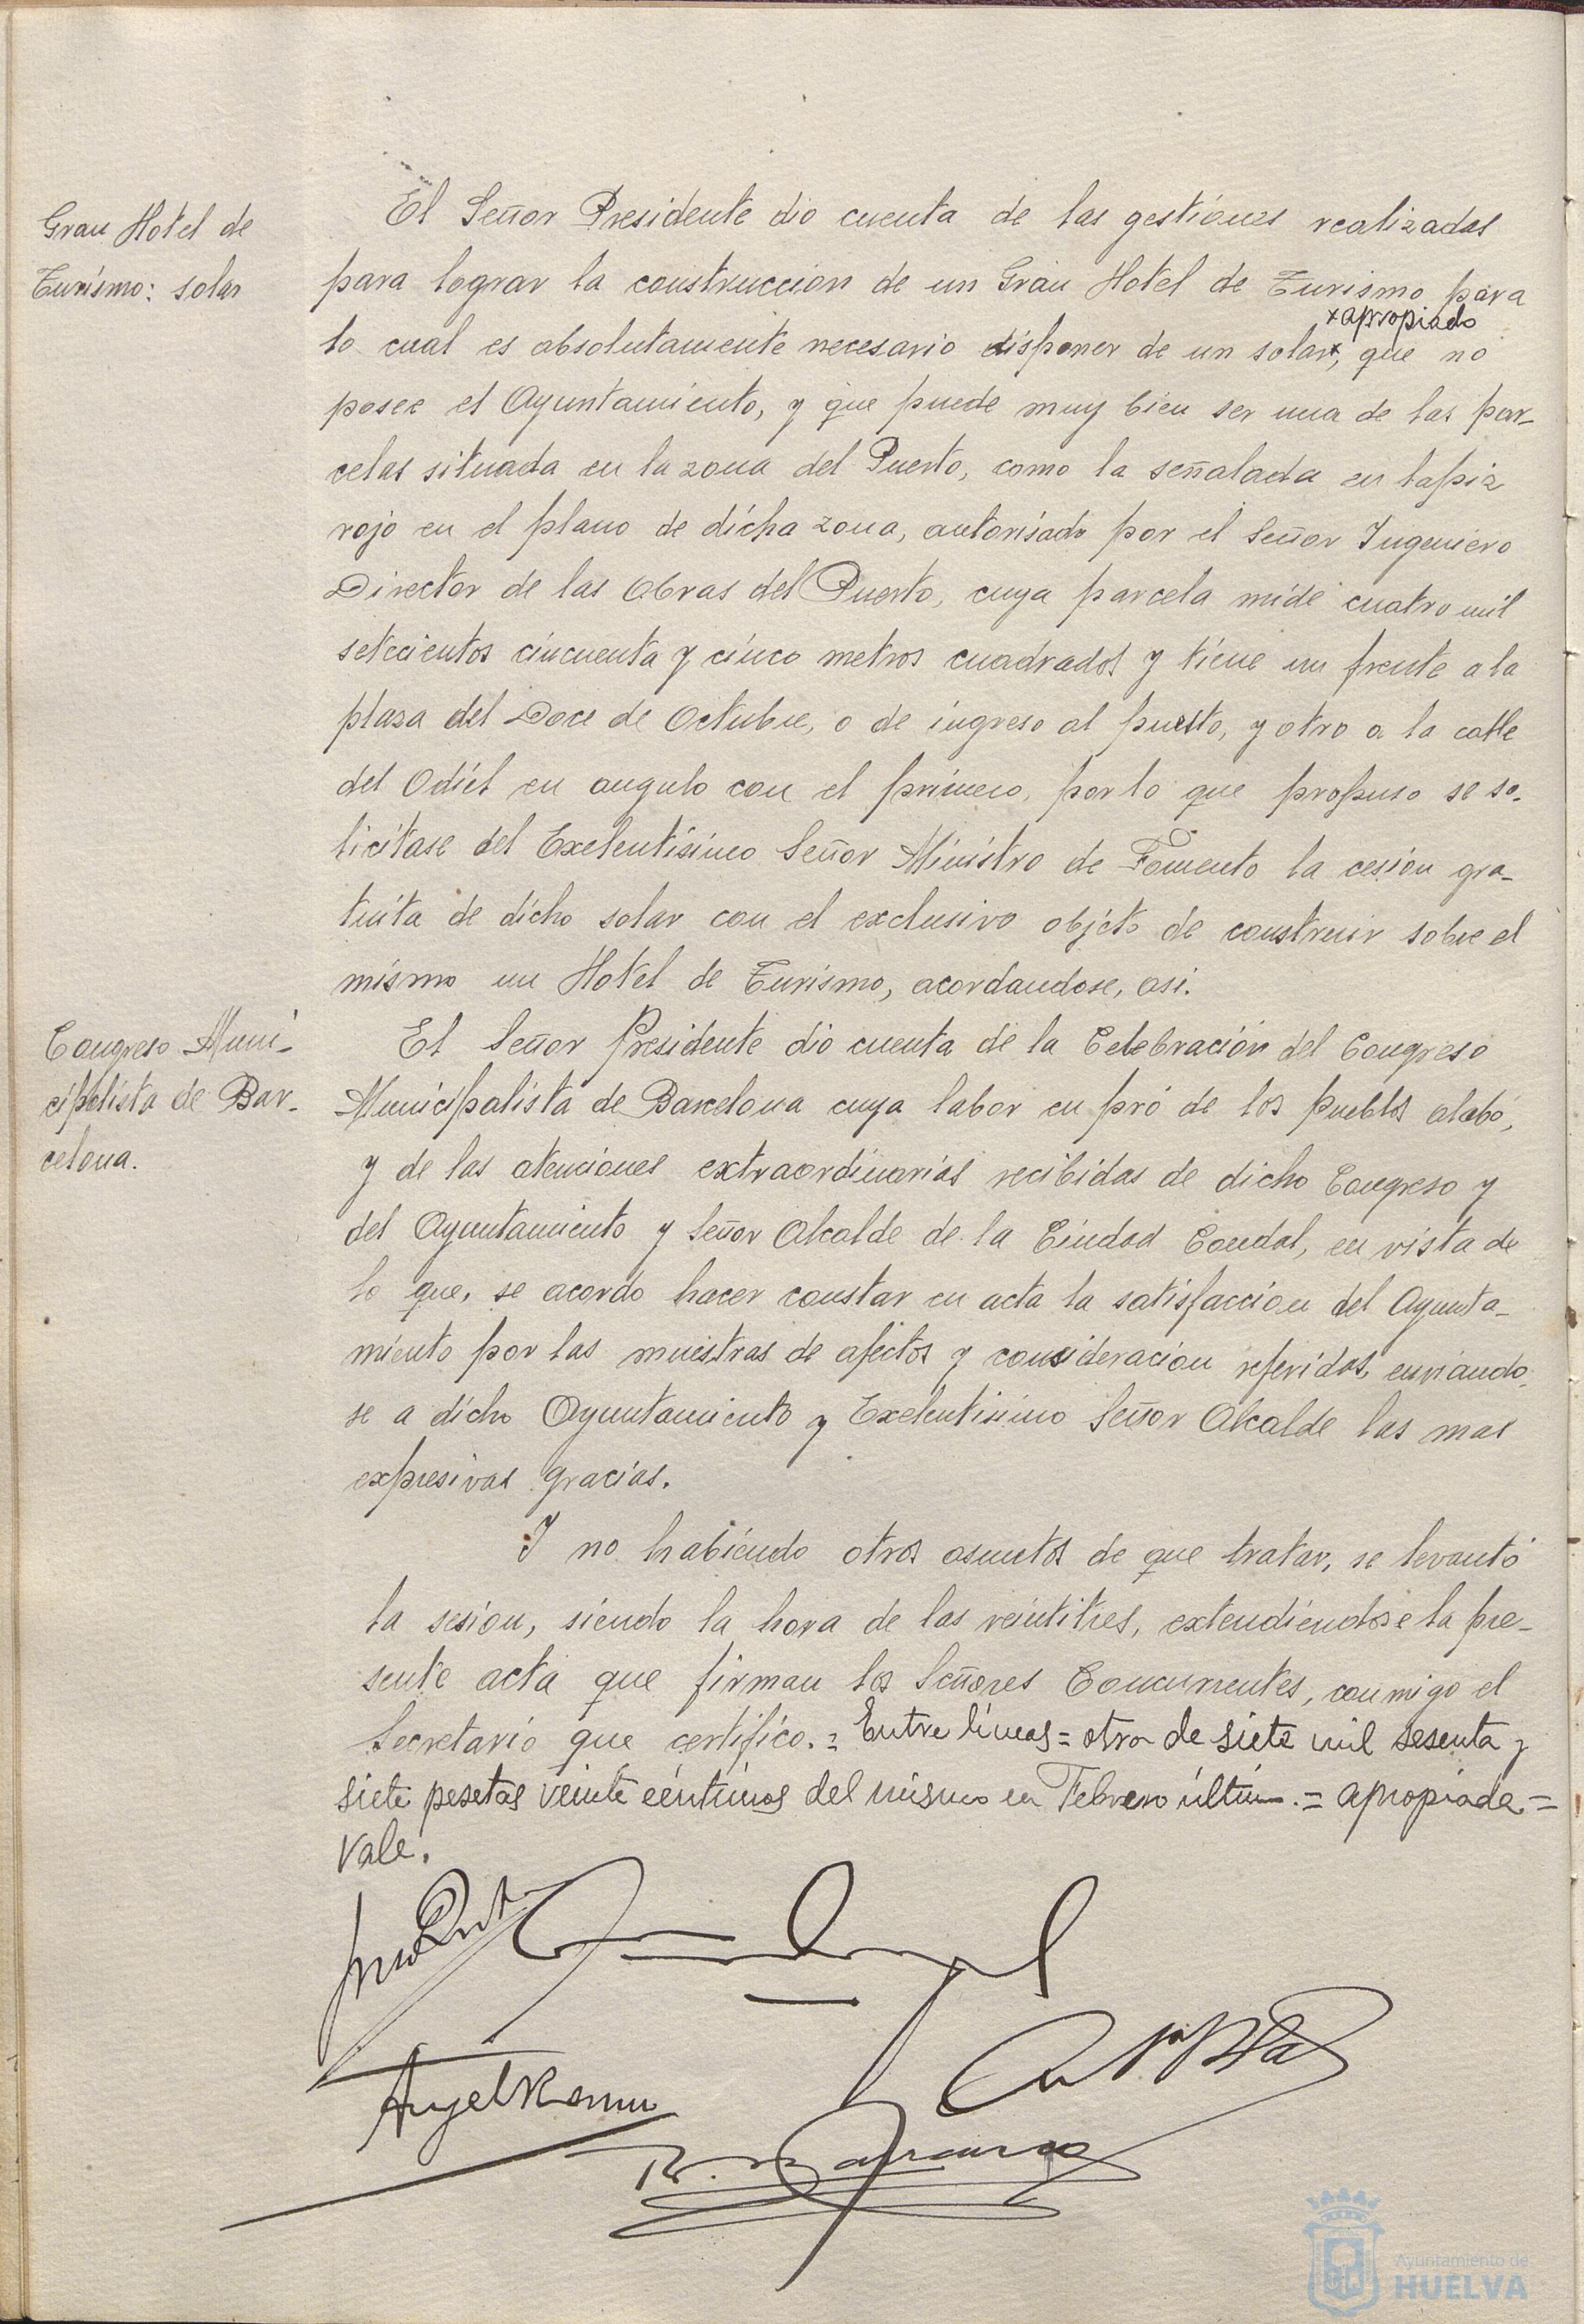 Gran Hotel de
Turismo: solar
El Señor Presidente dio cuenta de las gestiones realizadas
para lograr la construccion de un Gran Hotel de Turismo para
x apropiado
lo cual es absolutamente necesario disponer de un solar x, que no
posee el Ayuntamiento, y que puede muy bien ser una de las par-
celas situada en la zona del Puerto, como la señalada en lapiz
rojo en el plano de dicha zona, autorisado por el Señor Ingeniero
Director de las Obras del Puerto, cuya parcela mide cuatro mil
setecientos cincuenta y cinco metros cuadrados y tiene un frente a la
plasa del Doce de Octubre, o de ingreso al puerto, y otro a la calle
del Odiel en angulo con el primero, por lo que propuso se so-
licitase del Exelentisimo Señor Ministro de Fomento la cesion gra-
tuita de dicho solar con el exclusivo objeto de construir sobre el
mismo un Hotel de Turismo, acordandose, asi.
Congreso Muni-
cipalista de Bar-
celona.
El Señor Presidente dio cuenta de la Celebración del Congreso
Municipalista de Barcelona cuya labor en pró de los pueblos alabó,
y de las atenciones extraordinarias recibidas de dicho Congreso y
del Ayuntamiento y Señor Alcalde de la Ciudad Condal, en vista de
lo que, se acordo hacer constar en acta la satisfaccion del Ayunta-
miento por las muestras de afectos y consideracion referidas, enviando-
se a dicho Ayuntamiento y Exelentisimo Señor Alcalde las mas
expresivas gracias.
Y no habiendo otros asuntos de que tratar, se levantó
la sesion, siendo la hora de las veintitres, extendiendose la pre-
sente acta que firman los Señores Concurrentes, conmigo el
Secretario que certifico. = Entre líneas = otra de siete mil sesenta y
siete pesetas veinte céntimos del mismo en Febrero último. = apropiado =
Vale.
Angel Romu
Ayuntamiento de
HUELVA